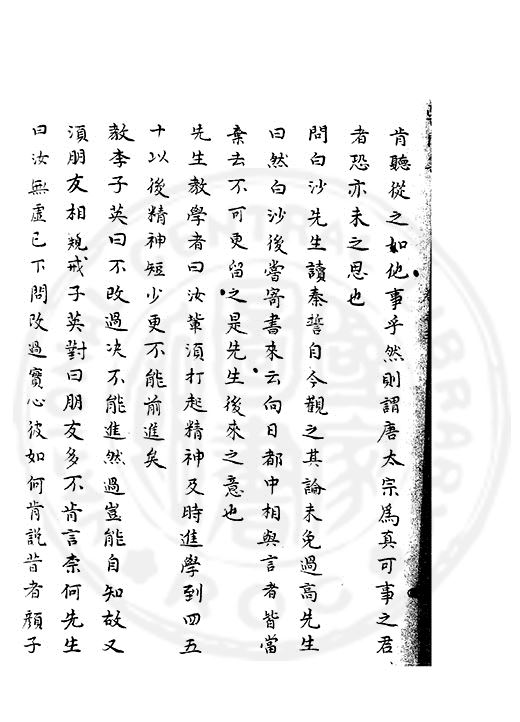 肯聽從之如他事乎然則謂唐太宗為真可事之君
者恐亦未之思也
問白沙先生讀秦誓自今觀之其論未免過高先生
曰然白沙後嘗寄書來云向日都中相與言者皆當
棄去不可更留之是先生後來之意也
先生教學者曰汝輩須打起精神及時進學到四五
十以後精神短少更不能前進矣
教李子英曰不改過決不能進然過豈能自知故又
須朋友相規戒子英對曰朋友多不肯言柰何先生
曰汝無虛己下問改過實心彼如何肯説昔者顏子